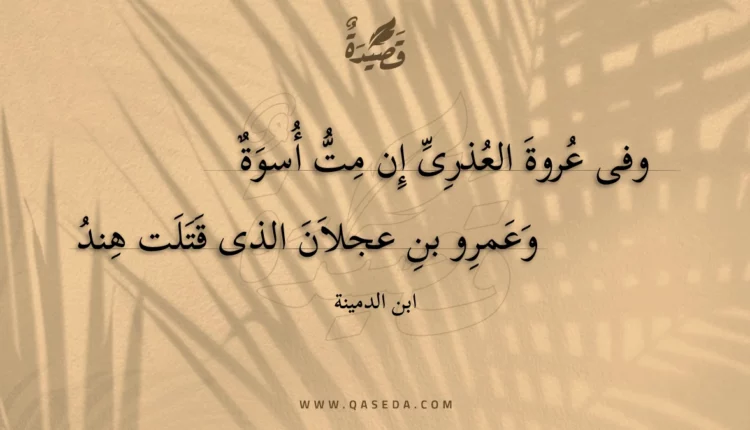 قَصِيدَةٌ
وفى عُروةَ العُذرِىِّ إِن مِتُّ أُسوَةٌ
وَعَمرِو بنِ عجلاَنَ الذى قَتَلَت هِندُ
ابن الدمينة
WWW.QASEDA.COM